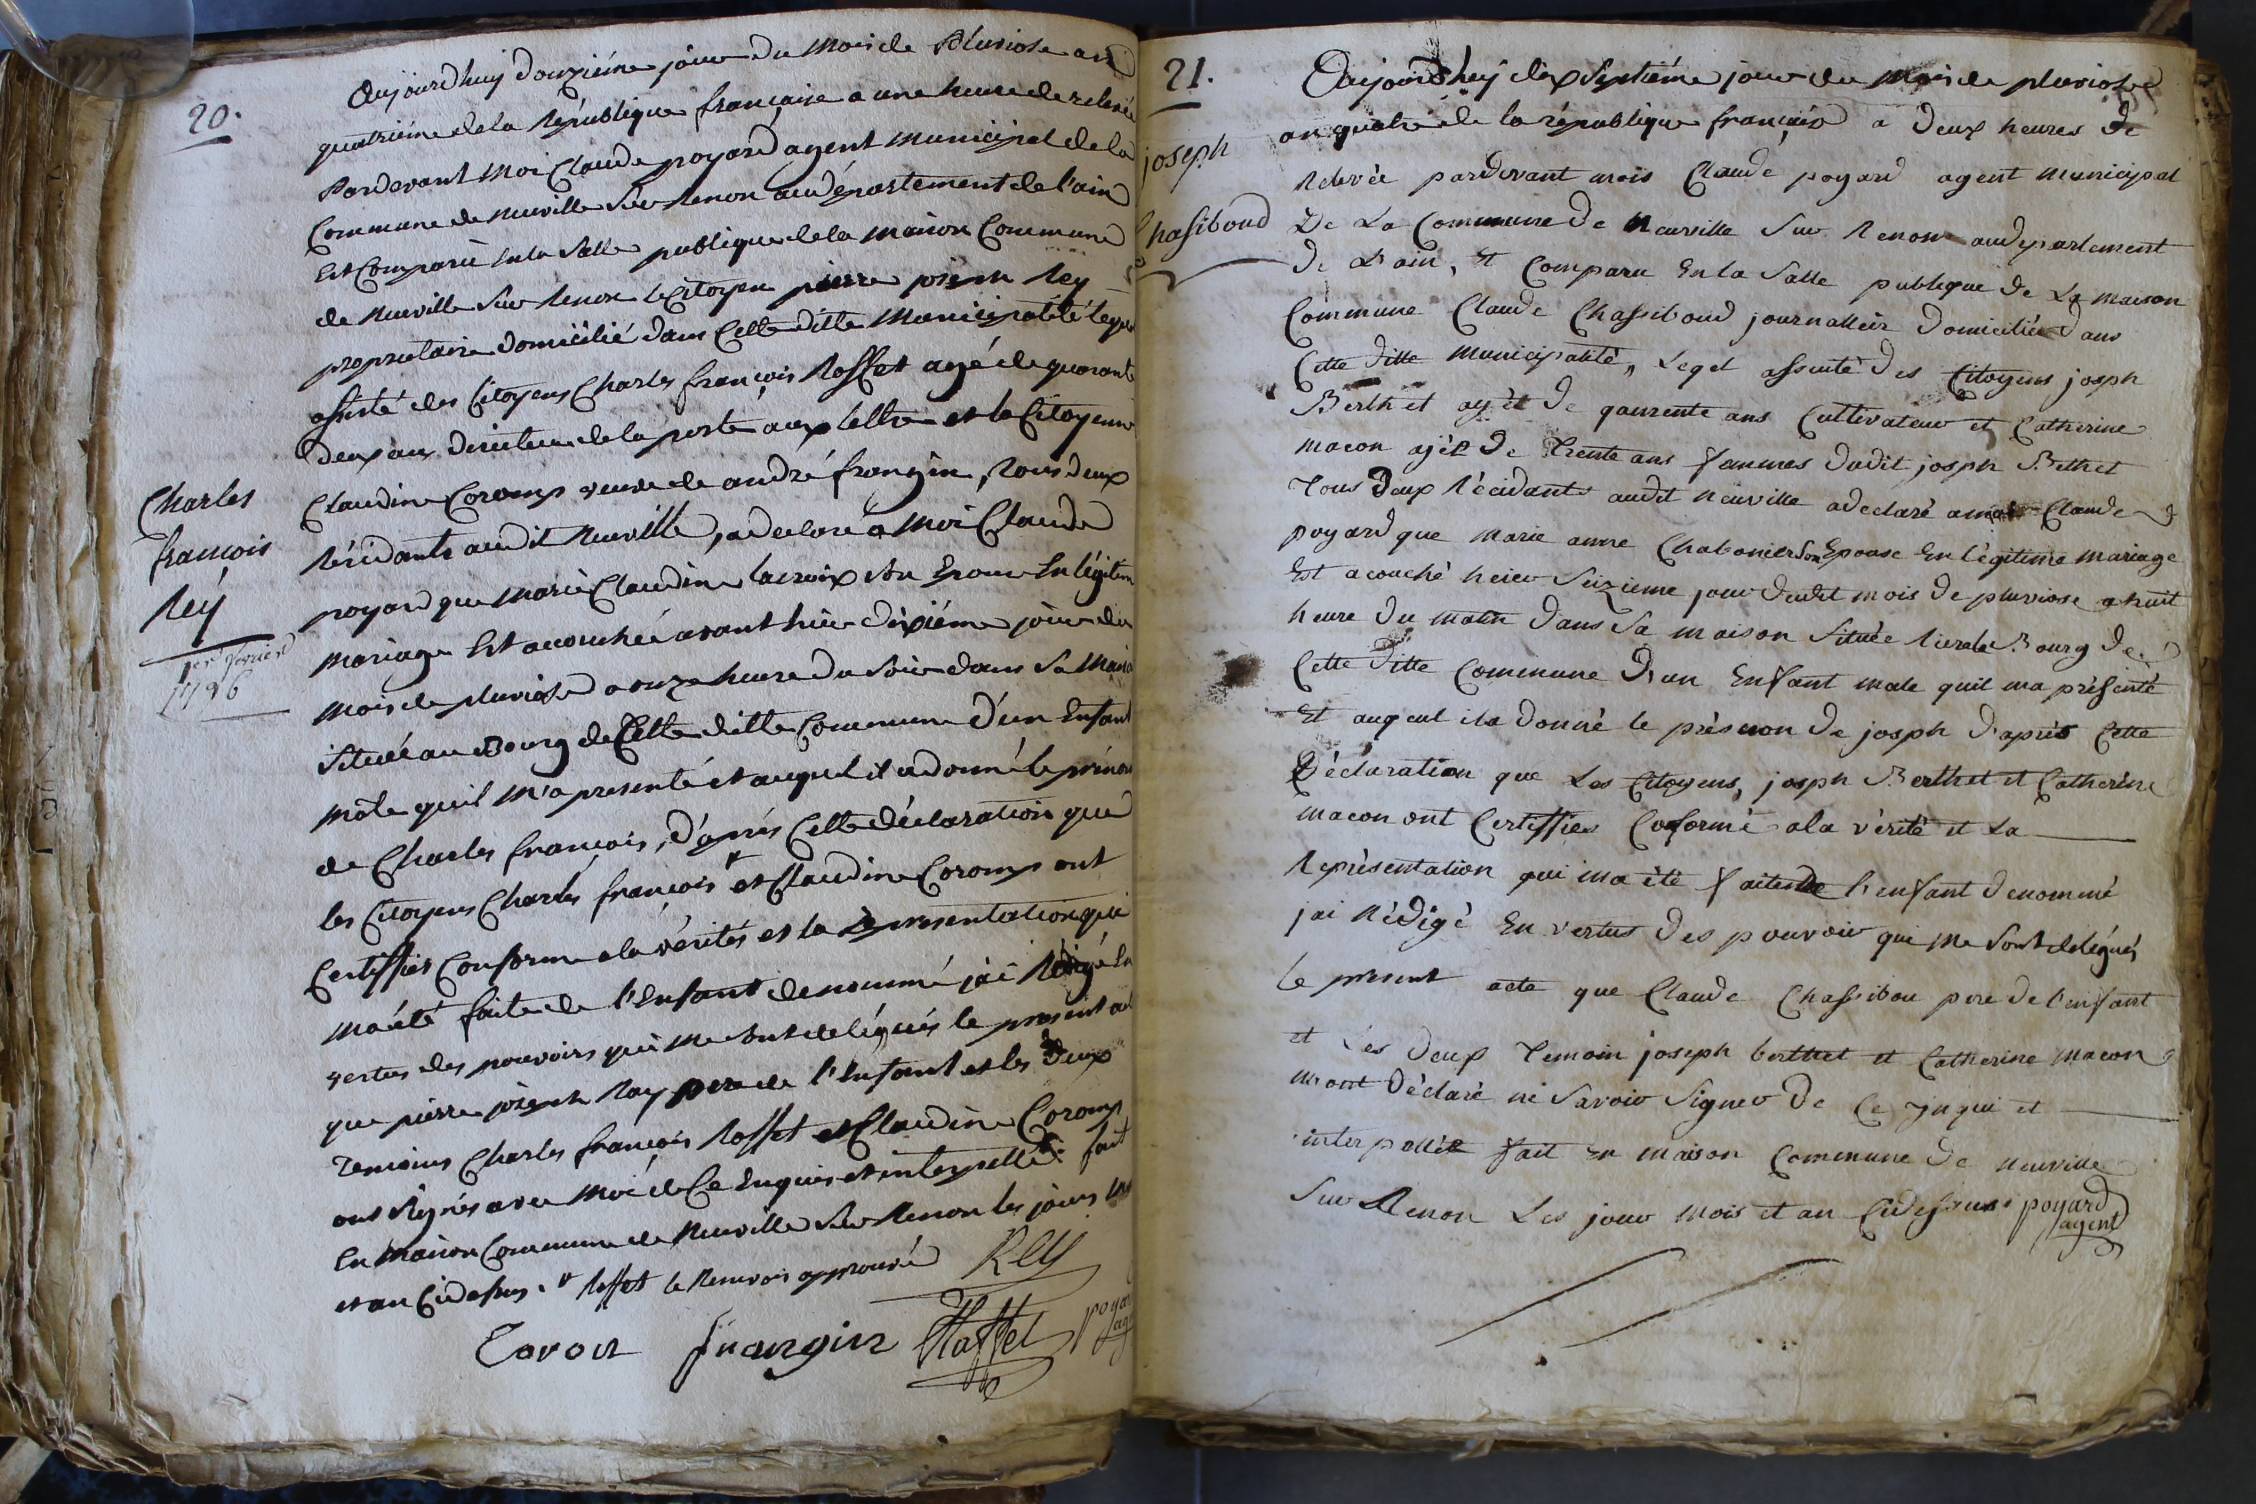 20.
Aujourd'huy douzième jour du Mois de Pluviose an
quatrième de la République française a une heure de relevée
Pardevant Moi Claude poyard agent Municipal de la
Commune de Neuville Sur Renon au département de l'ain
Est Comparu En la Salle publique de la Maison Commune
de Neuville Sur Renon le Citoyen pierre joseph Rey
propriétaire domicilié dans Cette ditte Municipalité lequel
assisté des Citoyens Charles françois Roffet agé de quarante
deux ans directeur de la poste aux lettre et la Citoyenne
Claudine Coromp veuve de andré frangin, tous deux
Résidants audit Neuville, a déclaré a Moi Claude
poyard que Marie Claudine lacroix son Epouse En légitime
mariage Est accouchée avant hier dixième jour du
Mois de pluviose a onze heure du Soir dans Sa Maison
Située au Bourg de Cette ditte Commune d'un Enfant
Mâle quil M'a presenté et auquel il a donné le prénom
de Charles françois, d'après Cette déclaration que
les Citoyens Charles françois et Claudine Coromp ont
Certiffiés Conforme a la vérités et la Representation qui
M'a été faite de l'Enfant denommé j'ai Rédigé En
vertus des pouvoirs qui Me Sont delégués le present
que pierre joseph Ray pere de l'Enfant et les deux
Temoins Charles françois Roffet et Claudine Coromp
ont Signés avec Moi de Ce Enquis et interpellé. fait
En Maison Commune de Neuville Sur Renon les jours
et an Cidessus. Roffet le Renvoi approuvé Rey
frangin Roffet
Charles
francois
Réy
1er février
1796
21.
joseph
Chasiboud
Aujourd'huj dix Septiéme jour du Mois de pluviose
an quatre de la république française a Deux heures De
Relevée pardevant mois Claude poyard agent Municipal
De La Commune De Neuville Sur Renon au departement
De L'ain, Et Comparu En la Salle publique De La Maison
Commune Claude Chassiboud journallier Domicilié Dans
Cette Ditte Municipalité, Leqel assisté Des Citoyens josph
Berthet agèt De qaurente ans Cultivateur et Catherine
macon ajèt De Trente ans fammes Dudit josph Bethet
Tous Deux Récidants audit Neuville a declaré a moi Claude
poyard que Marie anne Chabonier Son Epouse En légitime mariage
Est acouché heier Seizieme jour Dudit mois De pluviose a huit
heure Du matin Dans Sa maison Située Riere le Bourg De
Cette Ditte Commune D'un Enfant male quil ma présenté
Et auqeul il a Donné le prèsnon De josph D'après Cette
Déclaration que Les Citoyens, josph Berthet et Catherine
macon ont Certiffies Coformé a la vérité et La
Représentation qui ma été faite De l'enfant Denommé
jai Rédigé En vertus Des pouvoir qui Me Sont delégués
Le present acte que Claude Chassibou pere De l'enfant
et Les Deux Temoin joseph berthet et Catherine Macon
m'ont Déclaré ne Savoir Signer De Ce ynqui et
interpellèt fait En Maison Commune De Neuville
Sur Renon Les jour Mois et an Cidessus poyard
agent